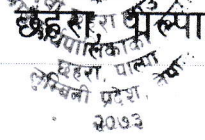 छहरा, पाल्पा
पालिकाको
छहरा, पाल्पा
लुम्बिनी प्रदेश, नेपाल
२०७३